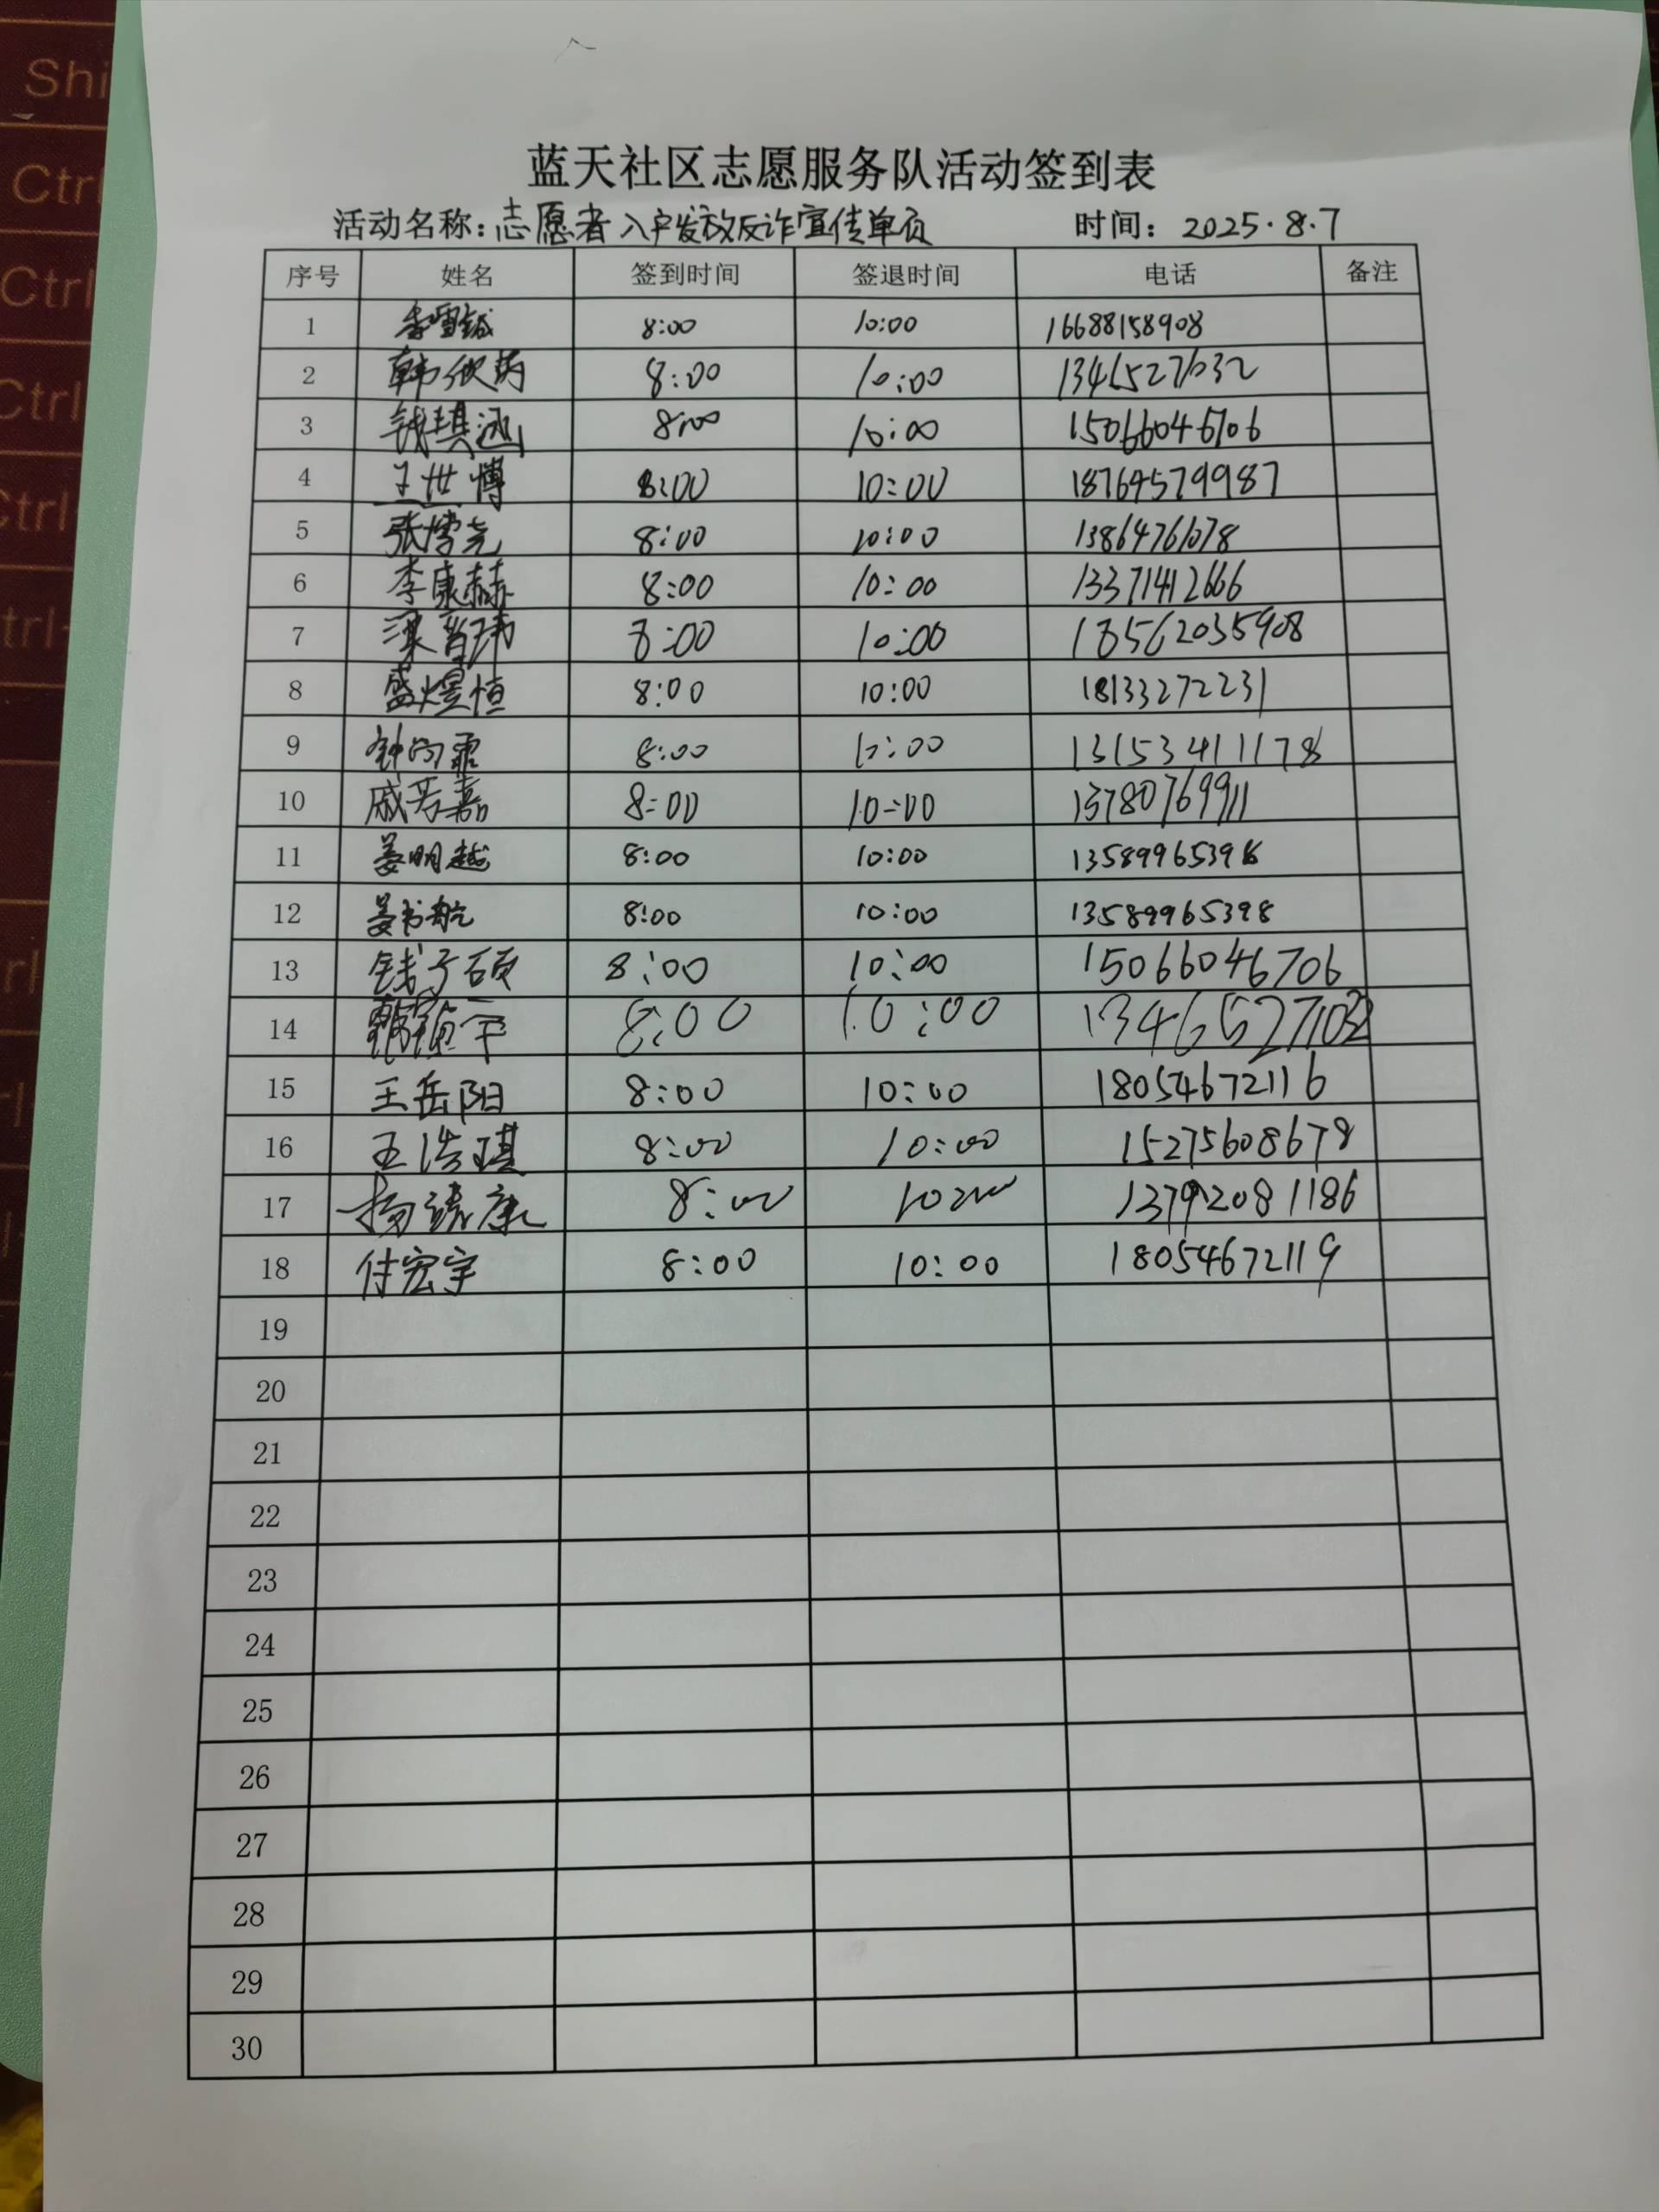 Shi
Ctrl
Ctrl
Ctrl
Ctrl
蓝天社区志愿服务队活动签到表
活动名称:志愿者入户发放反诈宣传单页 时间: 2025.8.7
序号 姓名 签到时间 签退时间 电话 备注
1 李雪铖 8:00 10:00 16688158908
2 韩欣芮 8:00 10:00
3 钱琪涵 8:00 10:00 15066046706
4 王世博 8:00 10:00 18764579987
5 张博尧 8:00 10:00
6 李康赫 8:00 10:00 13371412666
7 8:00 10:00 18562035908
8 盛煜恒 8:00 10:00 18133272231
9 8:00 10:00 13153411178
10 戚若嘉 8:00 10:00 13780769911
11 姜明越 8:00 10:00
12 姜书航 8:00 10:00 13589965398
13 钱子硕 8:00 10:00 15066046706
14 8:00 10:00
15 王岳阳 8:00 10:00 18054672116
16 王浩琪 8:00 10:00 15275608678
17 8:00 10:00 13792081186
18 付宏宇 8:00 10:00 18054672119
19
20
21
22
23
24
25
26
27
28
29
30